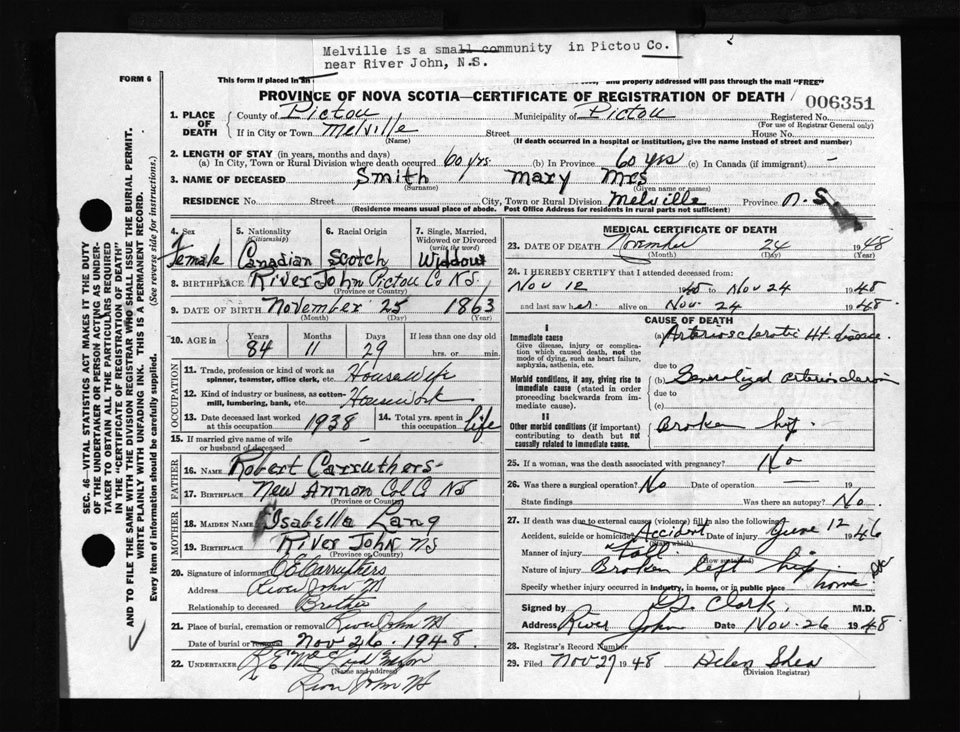 Melville is a small community in Pictou Co.
near River John, N.S.
FORM 6
This form if placed in an and properly addressed will pass through the mail "FREE"
PROVINCE OF NOVA SCOTIA—CERTIFICATE OF REGISTRATION OF DEATH
006351
1. PLACE OF DEATH
County of Pictou Municipality of Pictou Registered No.
(For use of Registrar General only)
If in City or Town Melville Street House No.
(Name) (If death occurred in a hospital or institution, give the name instead of street and number)
2. LENGTH OF STAY (in years, months and days)
(a) In City, Town or Rural Division where death occurred 60 yrs. (b) In Province 60 yrs (c) In Canada (if immigrant) -
3. NAME OF DECEASED Smith Mary Mrs
(Surname) (Given name or names)
RESIDENCE No. Street City, Town or Rural Division Melville Province N.S.
(Residence means usual place of abode. Post Office Address for residents in rural parts not sufficient)
4. Sex 5. Nationality (Citizenship) 6. Racial Origin 7. Single, Married, Widowed or Divorced (write the word)
Female Canadian Scotch Widow
8. BIRTHPLACE River John Pictou Co NS
(Province or Country)
9. DATE OF BIRTH November 25 1863
(Month) (Day) (Year)
10. AGE in Years Months Days If less than one day old
84 11 29 hrs. or min.
OCCUPATION
11. Trade, profession or kind of work as spinner, teamster, office clerk, etc. House Wife
12. Kind of industry or business, as cotton-mill, lumbering, bank, etc. Housework
13. Date deceased last worked at this occupation 1938 14. Total yrs. spent in this occupation life
15. If married give name of wife or husband of deceased -
FATHER
16. NAME Robert Carruthers
17. BIRTHPLACE New Annan Col Co NS
(Province or Country)
MOTHER
18. MAIDEN NAME Isabella Lang
19. BIRTHPLACE River John NS
(Province or Country)
20. Signature of informant Carruthers
Address River John NS
Relationship to deceased Brother
21. Place of burial, cremation or removal River John NS
Date of burial or removal Nov 26. 1948
22. UNDERTAKER
(Name and address)
River John NS
MEDICAL CERTIFICATE OF DEATH
23. DATE OF DEATH November 24 1948
(Month) (Day) (Year)
24. I HEREBY CERTIFY that I attended deceased from:
Nov 12 1948 to Nov 24 1948
and last saw her alive on Nov 24 1948.
CAUSE OF DEATH
I
Immediate cause (a) Arteriosclerotic Ht. disease
Give disease, injury or complication which caused death, not the mode of dying, such as heart failure, asphyxia, asthenia, etc.
due to
Morbid conditions, if any, giving rise to immediate cause (stated in order proceeding backwards from immediate cause). (b) Generalized arteriosclerosis
due to
(c)
II
Other morbid conditions (if important) contributing to death but not causally related to immediate cause. Broken hip.
25. If a woman, was the death associated with pregnancy? No
26. Was there a surgical operation? No Date of operation — 19
State findings Was there an autopsy? No.
27. If death was due to external causes (violence) fill in also the following:
Accident, suicide or homicide? Accident Date of injury June 12 1946
(State which)
Manner of injury Fall
(How sustained)
Nature of injury Broken left hip
Specify whether injury occurred in industry, in home, or in public place home
Signed by Clark, M.D.
Address River John Date Nov. 26 1948
28. Registrar's Record Number
29. Filed Nov 27 1948 Helen Shea
(Division Registrar)
SEC. 46—VITAL STATISTICS ACT MAKES IT THE DUTY
OF THE UNDERTAKER OR PERSON ACTING AS UNDER-
TAKER TO OBTAIN ALL THE PARTICULARS REQUIRED
IN THE "CERTIFICATE OF REGISTRATION OF DEATH"
AND TO FILE THE SAME WITH THE DIVISION REGISTRAR WHO SHALL ISSUE THE BURIAL PERMIT.
WRITE PLAINLY WITH UNFADING INK. THIS IS A PERMANENT RECORD.
Every item of information should be carefully supplied. (See reverse side for instructions.)